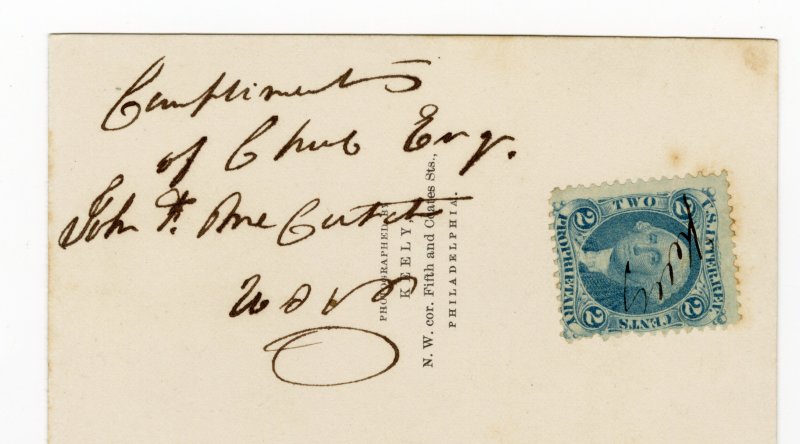 Compliments
of Chub Esq.
John F. McCutch
PHOTOGRAPHED BY
KEELY,
N. W. cor. Fifth and Coates Sts.,
PHILADELPHIA.
U.S. INTER. REV.
TWO
2 2
PROPRIETARY
2 CENTS 2
Keely